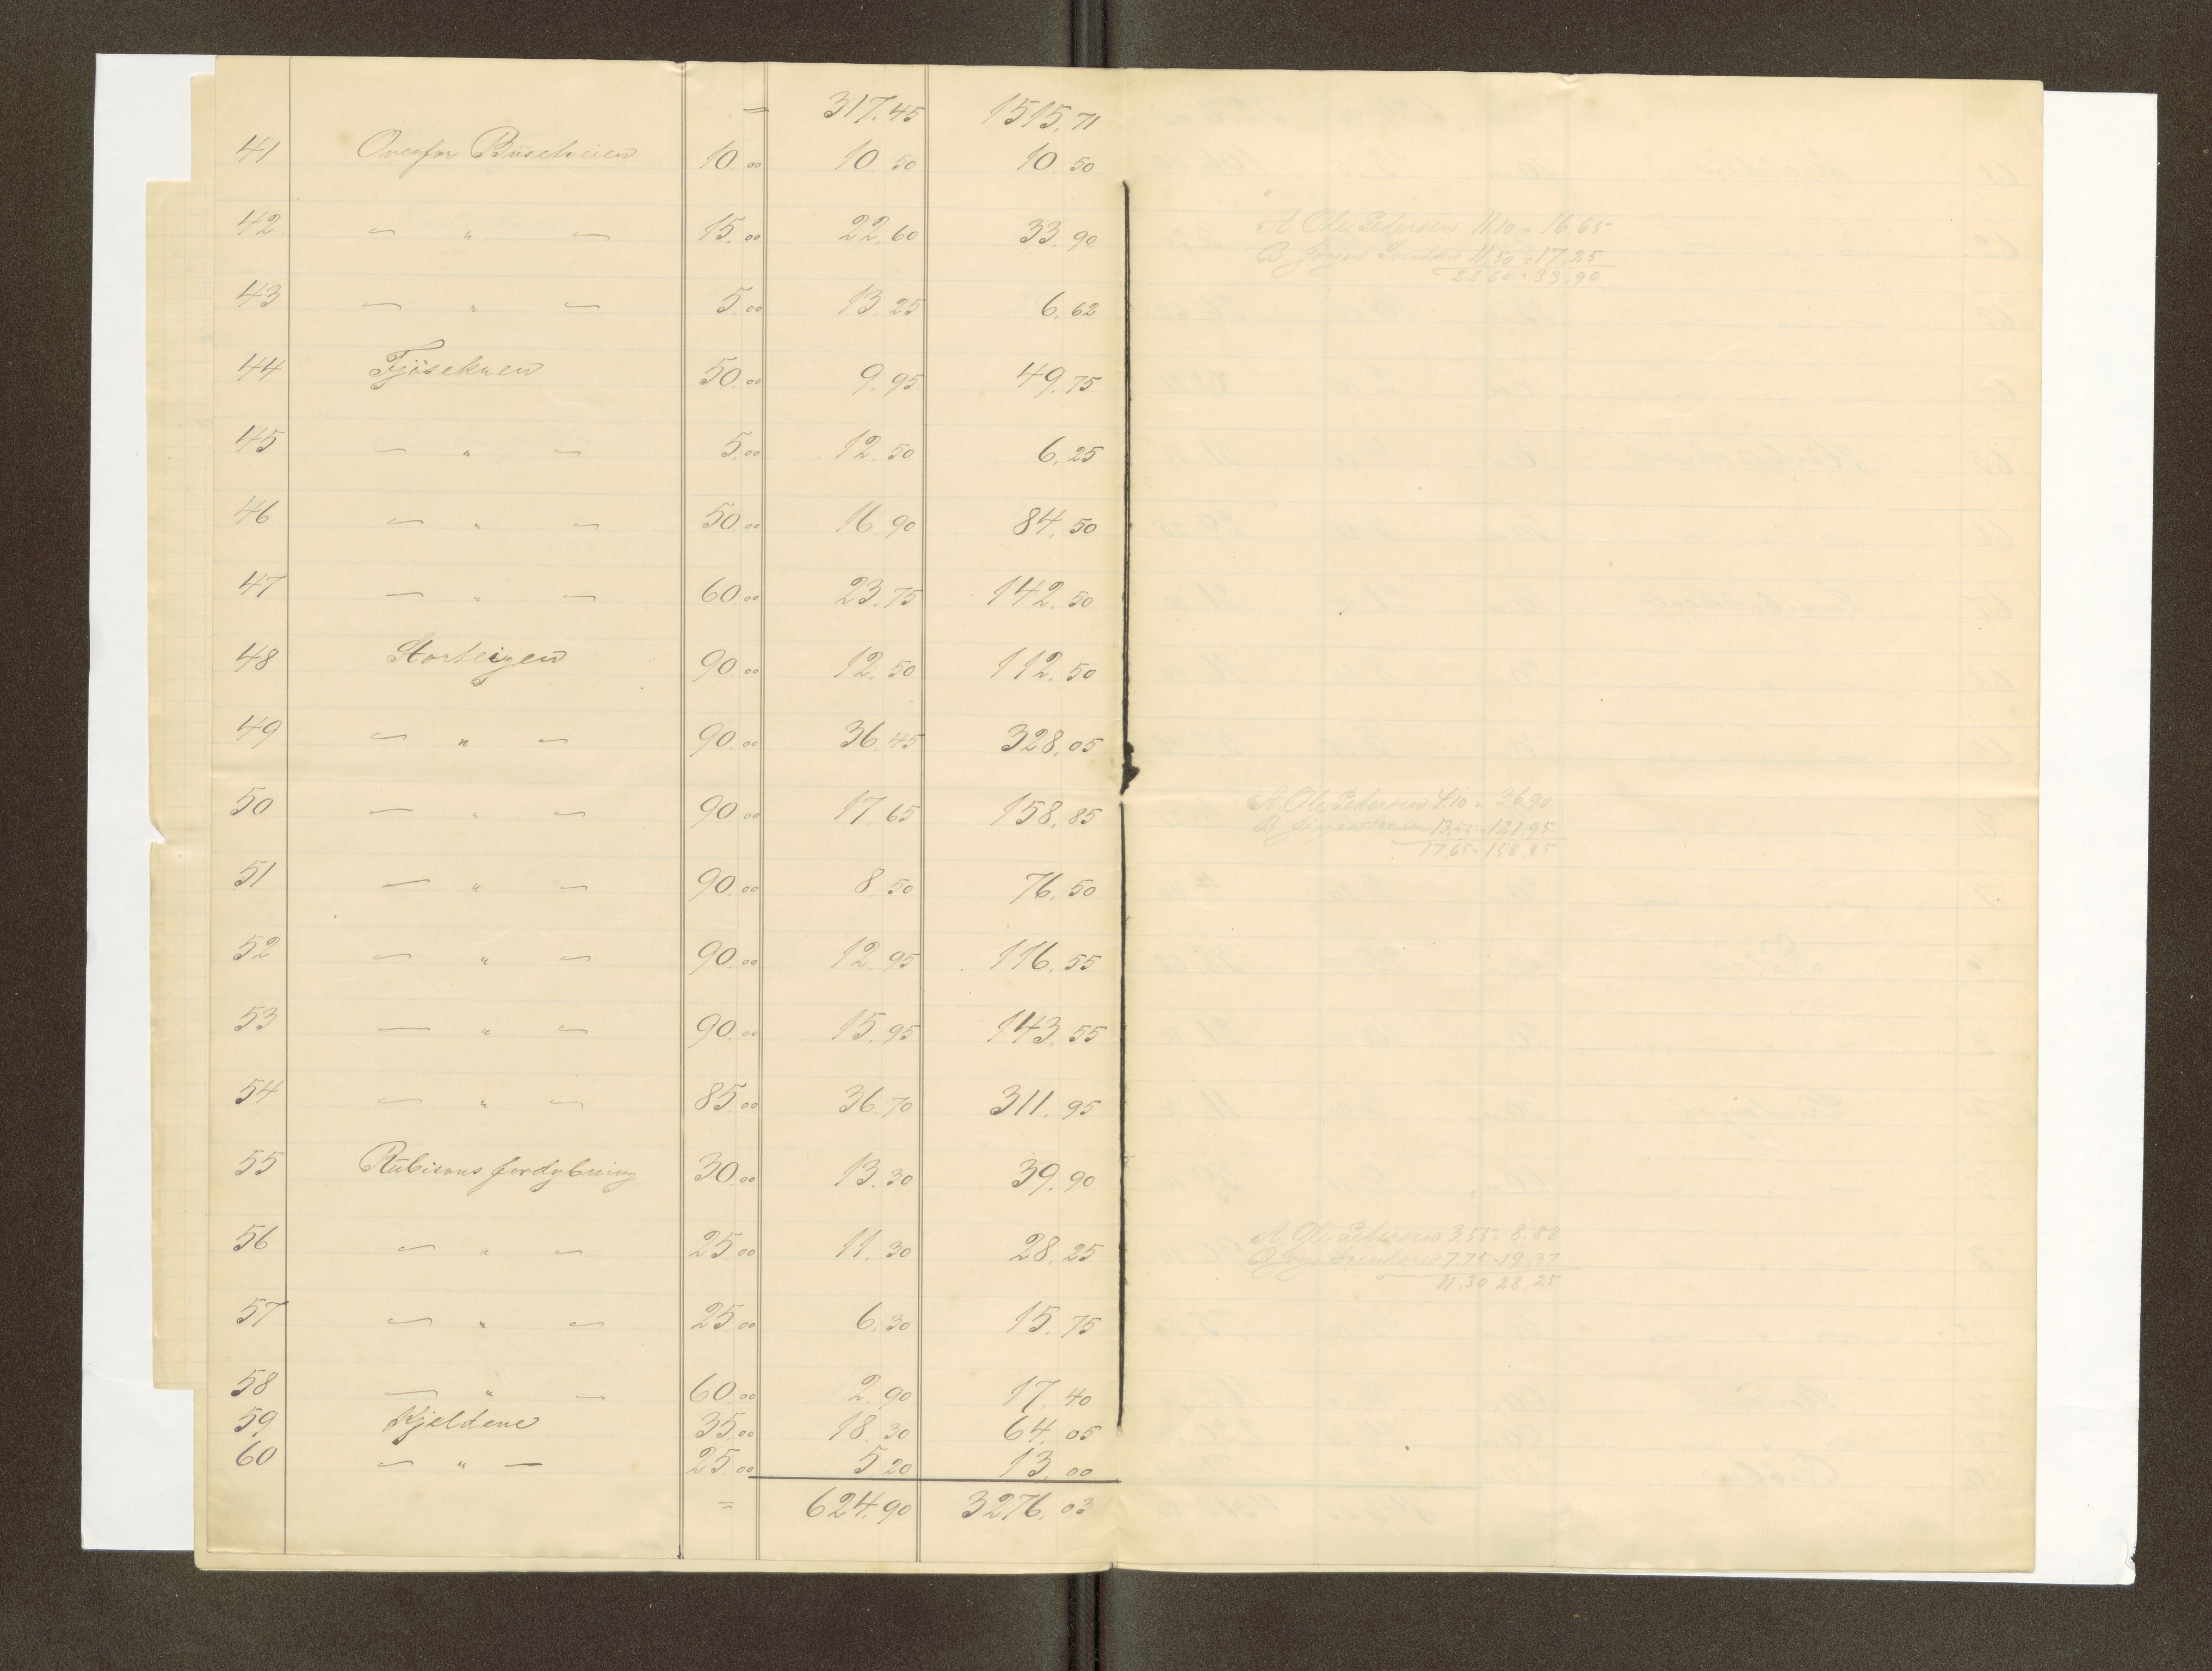 = 317.45 1515.71
41 Ovenfor Büseteien 10.00 10.50 10.50
42 — " — 15.00 22.60 33.90
43 — " — 5.00 13.25 6.62
44 50.00 9.95 49.75
45 — " — 5.00 12.50 6.25
46 — " — 50.00 16.90 84.50
47 — " — 60.00 23.75 142.50
48 Storteigen 90.00 12.50 112.50
49 — " — 90.00 36.45 328.05
50 — " — 90.00 17.65 158.85
51 — " — 90.00 8.50 76.50
52 — " — 90.00 12.95 116.55
53 — " — 90.00 15.95 143.55
54 — " — 85.00 36.70 311.95
55 30.00 13.30 39.90
56 — " — 25.00 11.30 28.25
57 — " — 25.00 6.30 15.75
58 — " — 60.00 2.90 17.40
59 Kjeldene 35.00 18.30 64.05
60 — " — 25.00 5.20 13.00
= 624.90 3276.03
A. Ole Pedersen 11.10 = 16.65
B. Jørgen Svendsen 11.50 = 17.25
22.60 = 33.90
A. Ole Pedersen 4.10 = 36.90
B. Jørgen Svendsen 13.55 = 121.95
17.65 = 158.85
A. Ole Pedersen 3.55 = 8.88
B. Jørgen Svendsen 7.75 = 19.37
11.30 28.25